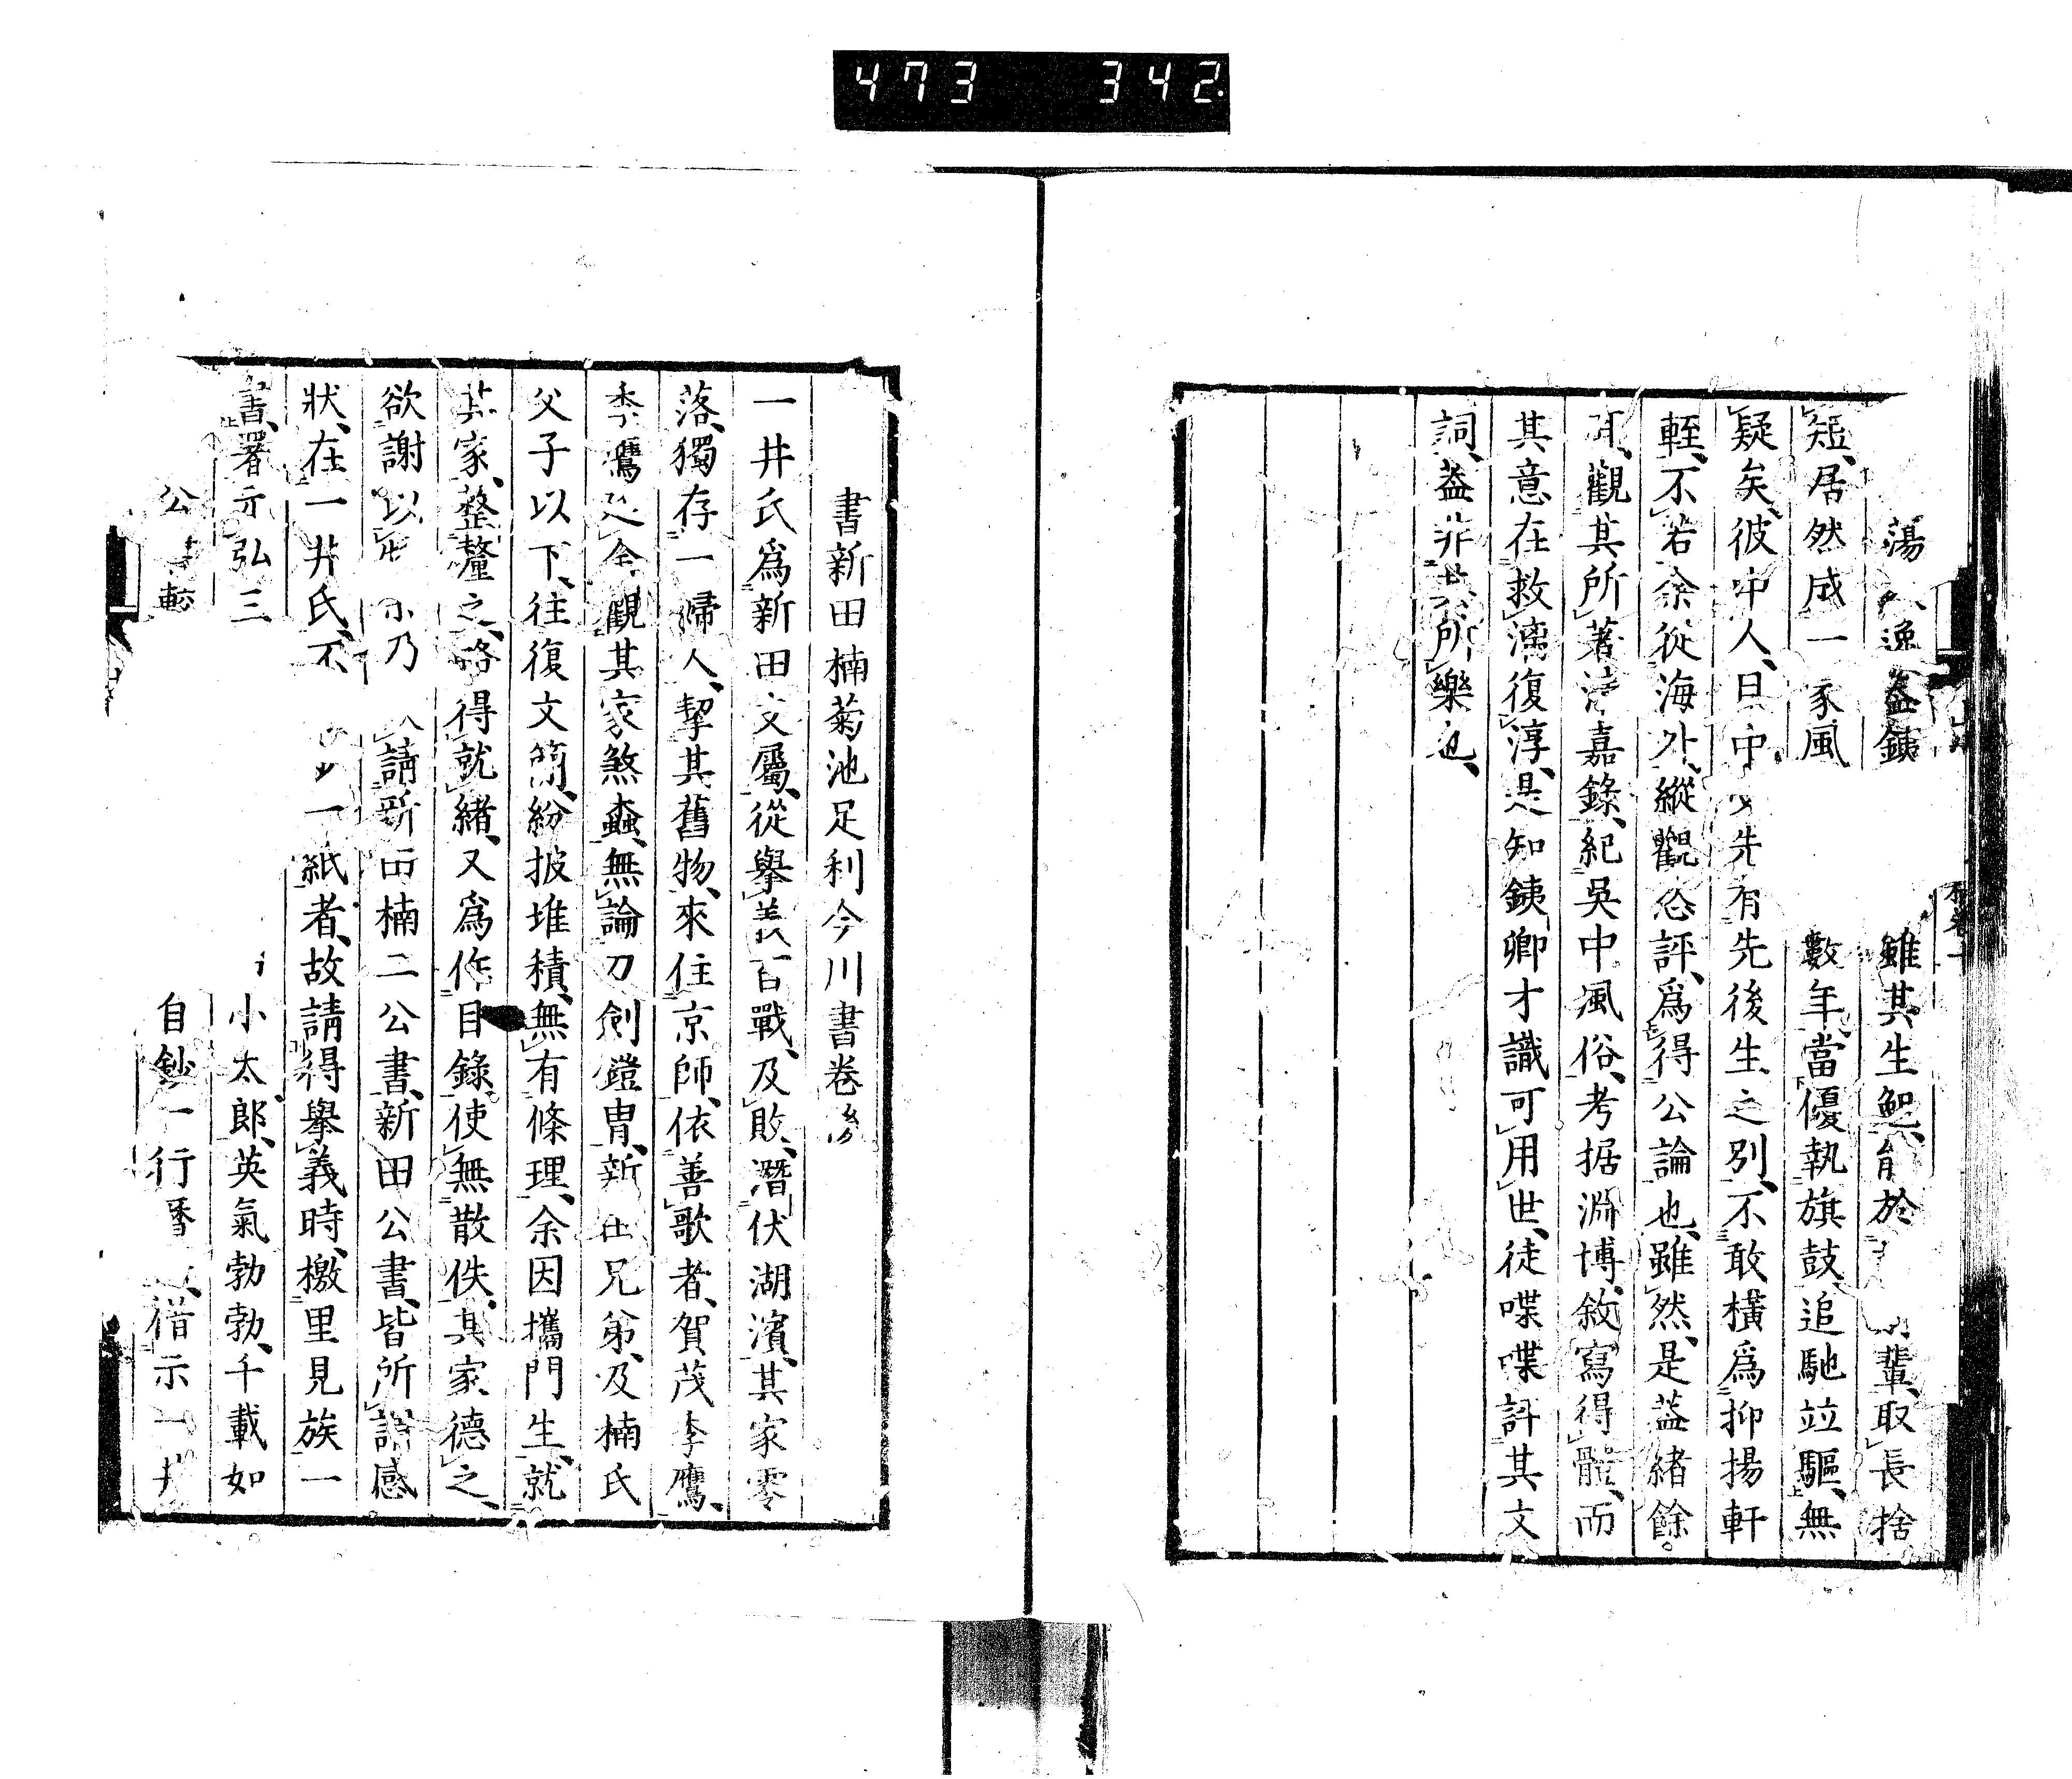 473 342
蕩 逸益銕 雖其生 於 輩取長捨
短居然成一家風 數年當優執旗鼓追馳竝驅無
疑矣彼中人日中 先有先後生之別不敢橫爲抑揚軒
輊不若余從海外縱觀恣評爲得公論也雖然是蓋緒餘
耳觀其所著 嘉錄紀吳中風俗考據淵博敘寫得體而
其意在救漓復淳是知銕卿才識可用世徒喋喋評其文
詞蓋非其所樂也
書新田楠菊池足利今川書卷後
一井氏爲新田支屬從擧義百戰及敗潛伏湖濱其家零
落獨存一婦人挈其舊物來住京師依善歌者賀茂季鷹
季鷹 余觀其家煞蠧無論刀劍鎧冑新田兄弟及楠氏
父子以下往復文簡紛披堆積無有條理余因攜門生就
其家整釐之略得就緒又爲作目錄使無散佚其家德之
欲謝以 乃 請新田楠二公書新田公書皆所請感
狀在一井氏不 一紙者故請得擧義時檄里見族一
書署示弘三 小太郎英氣勃勃千載如
公 較 自鈔一行曆 借示一井